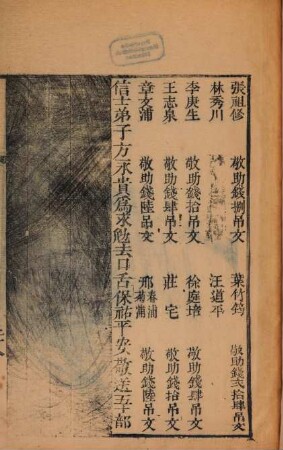 張祖修 敬助錢捌吊文 葉竹筠 敬助錢弍拾肆吊文
林秀川 汪道平
李庚生 敬助錢拾吊文 徐庭璋 敬助錢肆吊文
王志泉 敬助錢肆吊文 莊宅 敬助錢拾吊文
章文浦 敬助錢陸吊文 邢春浦 敬助錢陸吊文
信士弟子方永貴為求 去口舌保祐平安敬送五十部